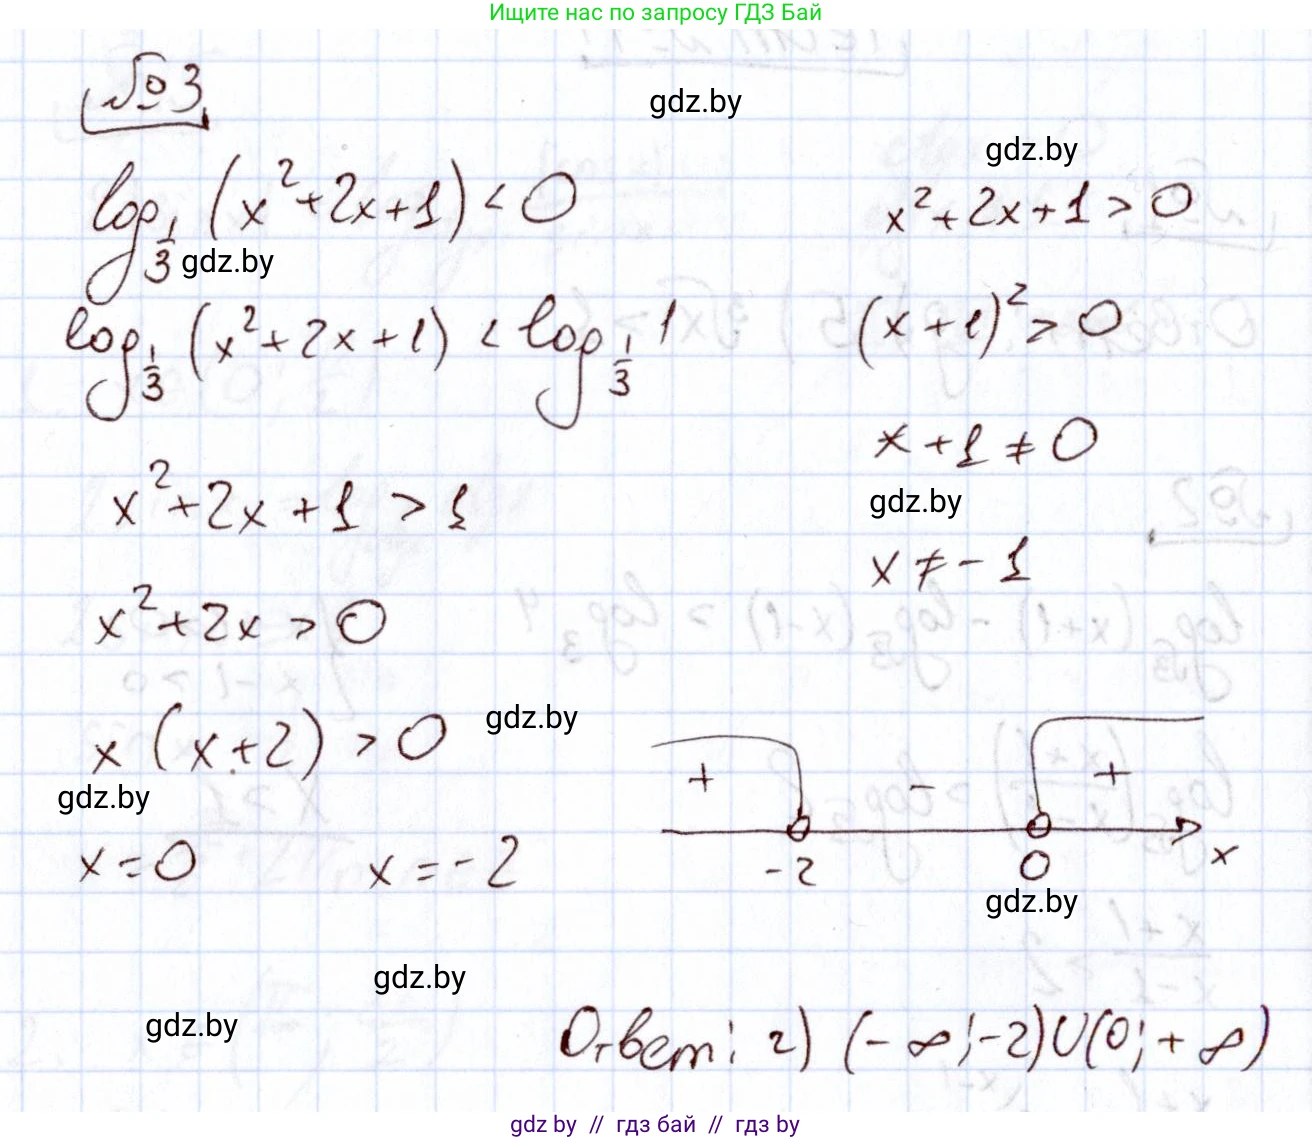 Ищите нас по запросу ГДЗ Бай
№3
gdz.by
gdz.by
log_{1/3} (x² + 2x + 1) < 0
x² + 2x + 1 > 0
gdz.by
log_{1/3} (x² + 2x + 1) < log_{1/3} 1
(x + 1)² > 0
x + 1 ≠ 0
x² + 2x + 1 > 1
gdz.by
x ≠ -1
x² + 2x > 0
x (x + 2) > 0
gdz.by
gdz.by
+ - +
x = 0 x = -2
-2 0 x
gdz.by
gdz.by
gdz.by
Ответ: г) (-∞; -2) U (0; +∞)
gdz.by // гдз бай // гдз by